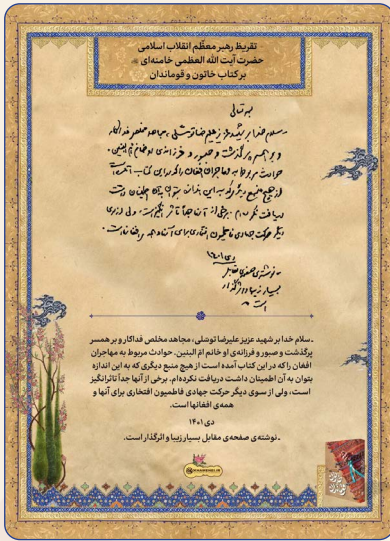 تقریظ رهبر معظّم انقلاب اسلامی
حضرت آیت الله العظمی خامنه‌ای
بر کتاب خاتون و قوماندان
بسمه تعالی
سلام خدا بر شهید عزیز علیرضا توسّلی، مجاهد مخلص فداکار
و بر همسر پرگذشت و صبور و فرزانه‌ی او خانم امّ البنین.
حوادث مربوط به مهاجران افغان را که در این کتاب آمده است
از هیچ منبع دیگری که به این اندازه بتوان به آن اطمینان داشت
دریافت نکرده‌ام. برخی از آنها جداً تأثرانگیز است، ولی از سوی
دیگر حرکت جهادی فاطمیون افتخاری برای آنها و همه‌ی افغانها است.
دی ۱۴۰۱
نوشته‌ی صفحه‌ی مقابل
بسیار زیبا و اثرگذار
است
ـ سلام خدا بر شهید عزیز علیرضا توسّلی، مجاهد مخلص فداکار و بر همسر
پرگذشت و صبور و فرزانه‌ی او خانم امّ البنین. حوادث مربوط به مهاجران
افغان را که در این کتاب آمده است از هیچ منبع دیگری که به این اندازه
بتوان به آن اطمینان داشت دریافت نکرده‌ام. برخی از آنها جداً تاثرانگیز
است، ولی از سوی دیگر حرکت جهادی فاطمیون افتخاری برای آنها و
همه‌ی افغانها است.
دی ۱۴۰۱
ـ نوشته‌ی صفحه‌ی مقابل بسیار زیبا و اثرگذار است.
KHAMENEI.IR